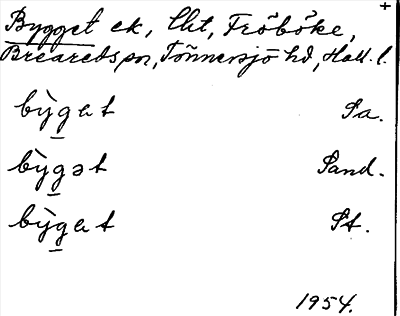 +
Bygget ek, Cht, Fröböke,
Breareds sn, Tönnersjö hd, Hall. l.
bỳgat Sa.
bỳgət Sand.
bỳgat St.
1954.